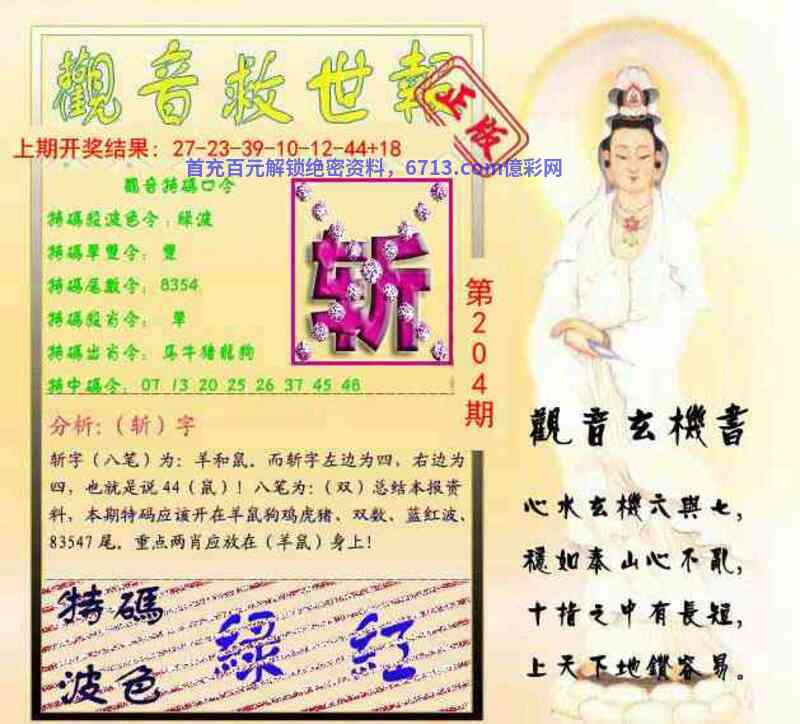 觀音救世報
正版
上期开奖结果：27-23-39-10-12-44+18
首充百元解锁绝密资料，6713.com億彩网
觀音特碼口令
特碼殺波色令：绿波
特碼單雙令：雙
特碼尾數令：8354
特碼殺肖令： 單
特碼出肖令：马牛猪龍狗
特中碼令：07 13 20 25 26 37 45 48
斩
第204期
分析:（斩）字
斩字（八笔）为：羊和鼠。而斩字左边为四，右边为
四，也就是说44（鼠）！八笔为：（双）总结本报资
料，本期特码应该开在羊鼠狗鸡虎猪、双数、蓝红波、
83547尾。重点两肖应放在（羊鼠）身上！
特碼
波色
綠 紅
觀音玄機書
心水玄機六與七，
穩如泰山心不亂，
十指之中有長短，
上天下地鑽容易。